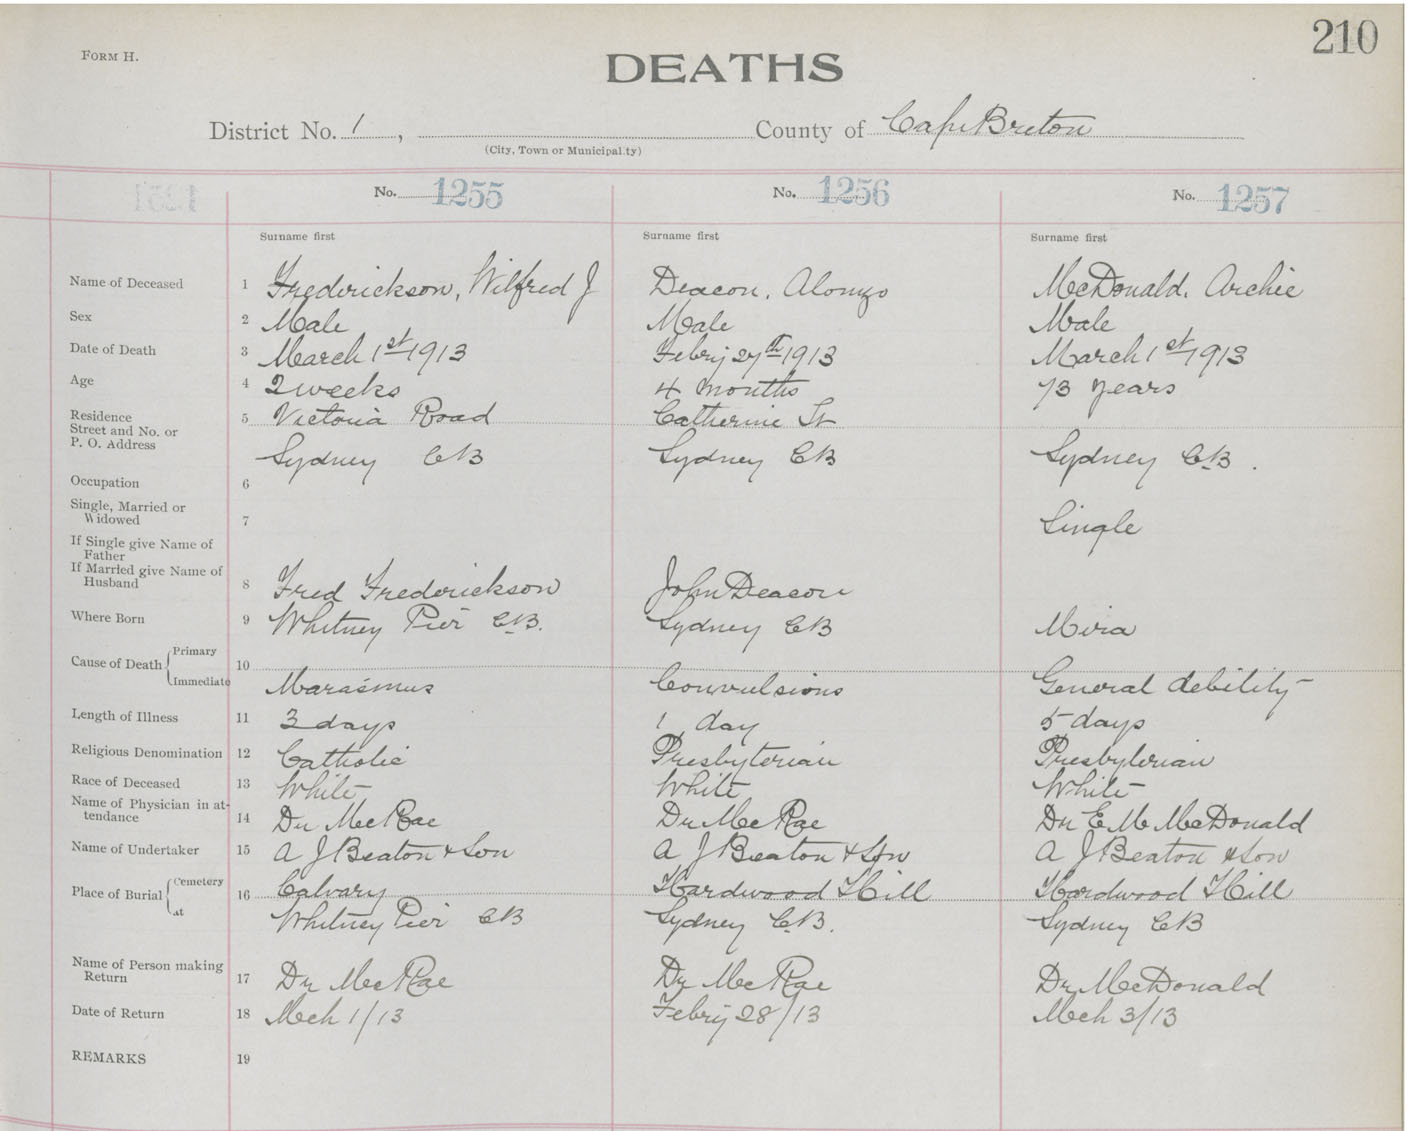 210
FORM H.
DEATHS
District No. 1 , County of Cape Breton
(City, Town or Municipality)
No. 1255 No. 1256 No. 1257
Surname first Surname first Surname first
Name of Deceased 1 Frederickson, Wilfred J Deacon, Alonzo McDonald, Archie
Sex 2 Male Male Male
Date of Death 3 March 1st 1913 Febry 27th 1913 March 1st 1913
Age 4 2 weeks 4 months 73 years
Residence Street and No. or P. O. Address 5 Victoria Road Catherine St
Sydney CB Sydney CB Sydney C.B.
Occupation 6
Single, Married or Widowed 7 Single
If Single give Name of Father
If Married give Name of Husband 8 Fred Frederickson John Deacon
Where Born 9 Whitney Pier C.B. Sydney CB Mira
Cause of Death Primary 10
Immediate Marasmus Convulsions General debility
Length of Illness 11 3 days 1 day 5 days
Religious Denomination 12 Catholic Presbyterian Presbylerian
Race of Deceased 13 White White White
Name of Physician in attendance 14 Dr McRae Dr McRae Dr E M McDonald
Name of Undertaker 15 A J Beaton & Son A J Beaton & Son A J Beaton & Son
Place of Burial Cemetery 16 Calvary Hardwood Hill Hardwood Hill
at Whitney Pier CB Sydney C.B. Sydney CB
Name of Person making Return 17 Dr McRae Dr McRae Dr McDonald
Date of Return 18 Mch 1/13 Febry 28/13 Mch 3/13
REMARKS 19